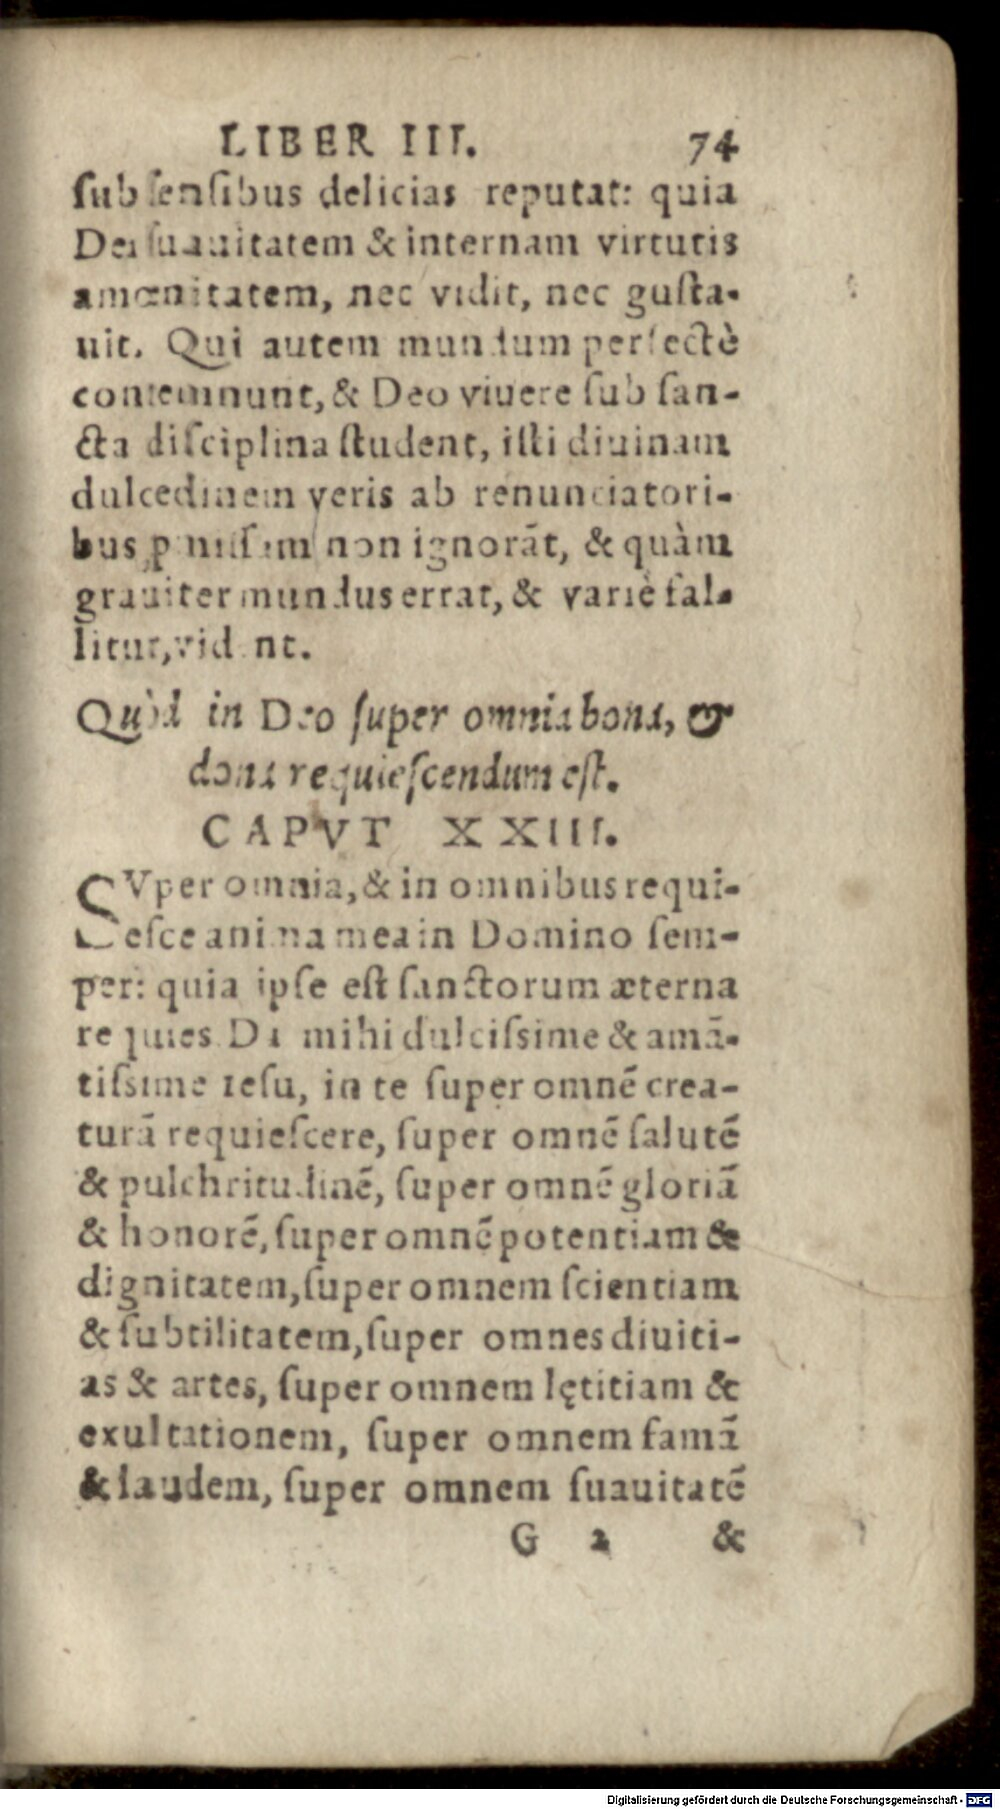 LIBER III. 74
ſub ſenſibus delicias reputat: quia
Dei ſuauitatem & internam virtutis
amœnitatem, nec vidit, nec guſta-
uit. Qui autem mundum perfectè
contemnunt, & Deo viuere ſub ſan-
cta diſciplina ſtudent, iſti diuinam
dulcedinem veris ab renunciatori-
bus non ignorāt, & quàm
grauiter mundus errat, & variè fal-
litur, vident.
Quòd in Deo ſuper omnia bona, &
dona requieſcendum eſt.
CAPVT XXIII.
SVper omnia, & in omnibus requi-
eſce anima mea in Domino ſem-
per: quia ipſe eſt ſanctorum æterna
requies Da mihi dulciſsime & amā-
tiſsime Ieſu, in te ſuper omnē crea-
turā requieſcere, ſuper omnē ſalutē
& pulchritudinē, ſuper omnē gloriā
& honorē, ſuper omnē potentiam &
dignitatem, ſuper omnem ſcientiam
& ſubtilitatem, ſuper omnes diuiti-
as & artes, ſuper omnem lętitiam &
exultationem, ſuper omnem famā
& laudem, ſuper omnem ſuauitatē
G 2 &
Digitalisierung gefördert durch die Deutsche Forschungsgemeinschaft - DFG